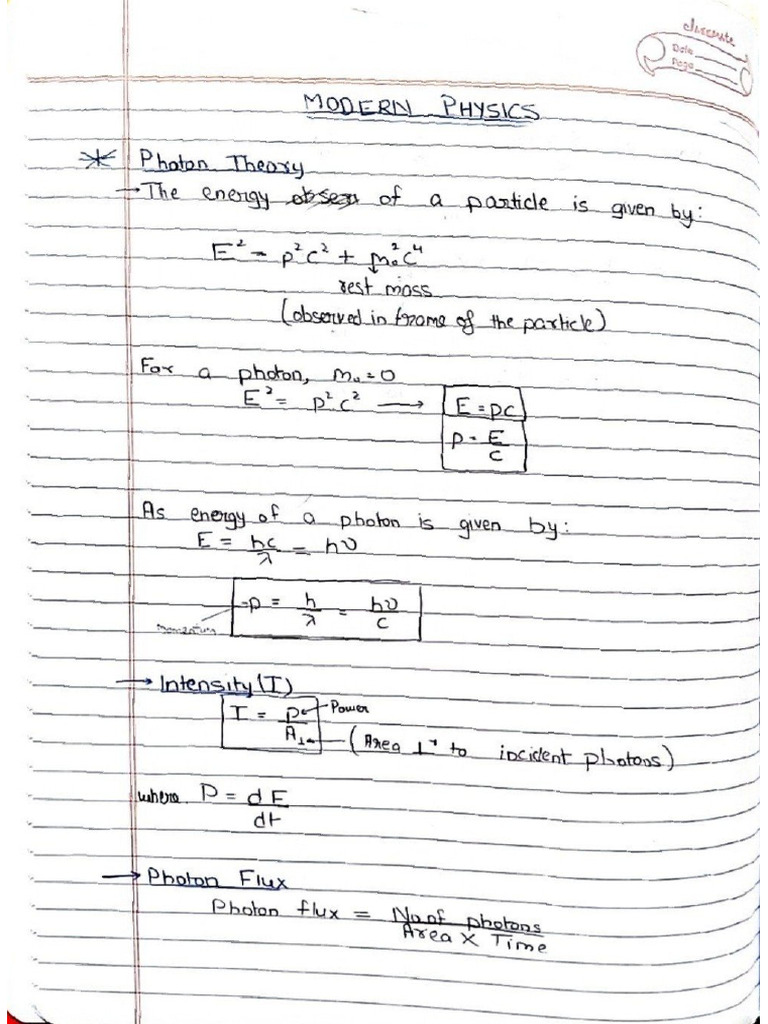 classmate
Date
Page
MODERN PHYSICS
* Photon Theory
→ The energy of a particle is given by:
E² = p²c² + m₀²c⁴
rest mass
(observed in frame of the particle)
For a photon, m₀ = 0
E² = p²c² → E = pc
p = E/c
As energy of a photon is given by:
E = hc/λ = hν
p = h/λ = hν/c
momentum
→ Intensity (I)
I = P/A⊥ Power
(Area ⊥ʳ to incident photons)
where P = dE/dt
→ Photon Flux
Photon flux = No of photons / Area × Time